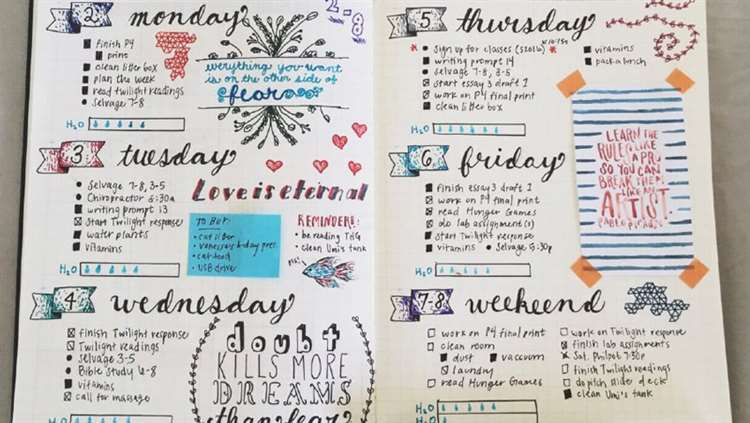 2 monday
2-8
finish P4
print
clean litter box
plan the week
read twilight readings
Selvage 7-8
H2O
everything you want
is on the other side of
fear
3 tuesday
Selvage 7-8, 3-5
Chiropractor
writing prompt 13
start Twilight response
water plants
vitamins
H2O
Love is eternal
TO BUY:
cat litter
Vanessa's b-day pres.
cat food
USB driver
REMINDERS:
be reading
clean Umi's tank
4 wednesday
finish Twilight response
Twilight readings
Selvage 3-5
Bible Study 6-8
vitamins
call for massage
H2O
doubt
KILLS MORE
DREAMS
than fear
5 thursday
sign up for classes
writing prompt 14
Selvage 7-8, 3-5
start essay 3 draft 1
work on P4 final print
clean litter box
vitamins
pack a lunch
H2O
LEARN THE
RULES LIKE
A PRO
SO YOU CAN
BREAK THEM
LIKE AN
ARTIST.
PABLO PICASSO
6 friday
finish essay 3 draft 1
work on P4 final print
read Hunger Games
do lab assignment(s)
start Twilight response
vitamins
Selvage 5:30p
H2O
7-8 weekend
work on P4 final print
clean room
dust
vaccuum
laundry
read Hunger Games
work on Twilight response
finish lab assignments
Sat. Philpot 7:30p
finish Twilight readings
do pitch slider deck
clean Umi's tank
H2O